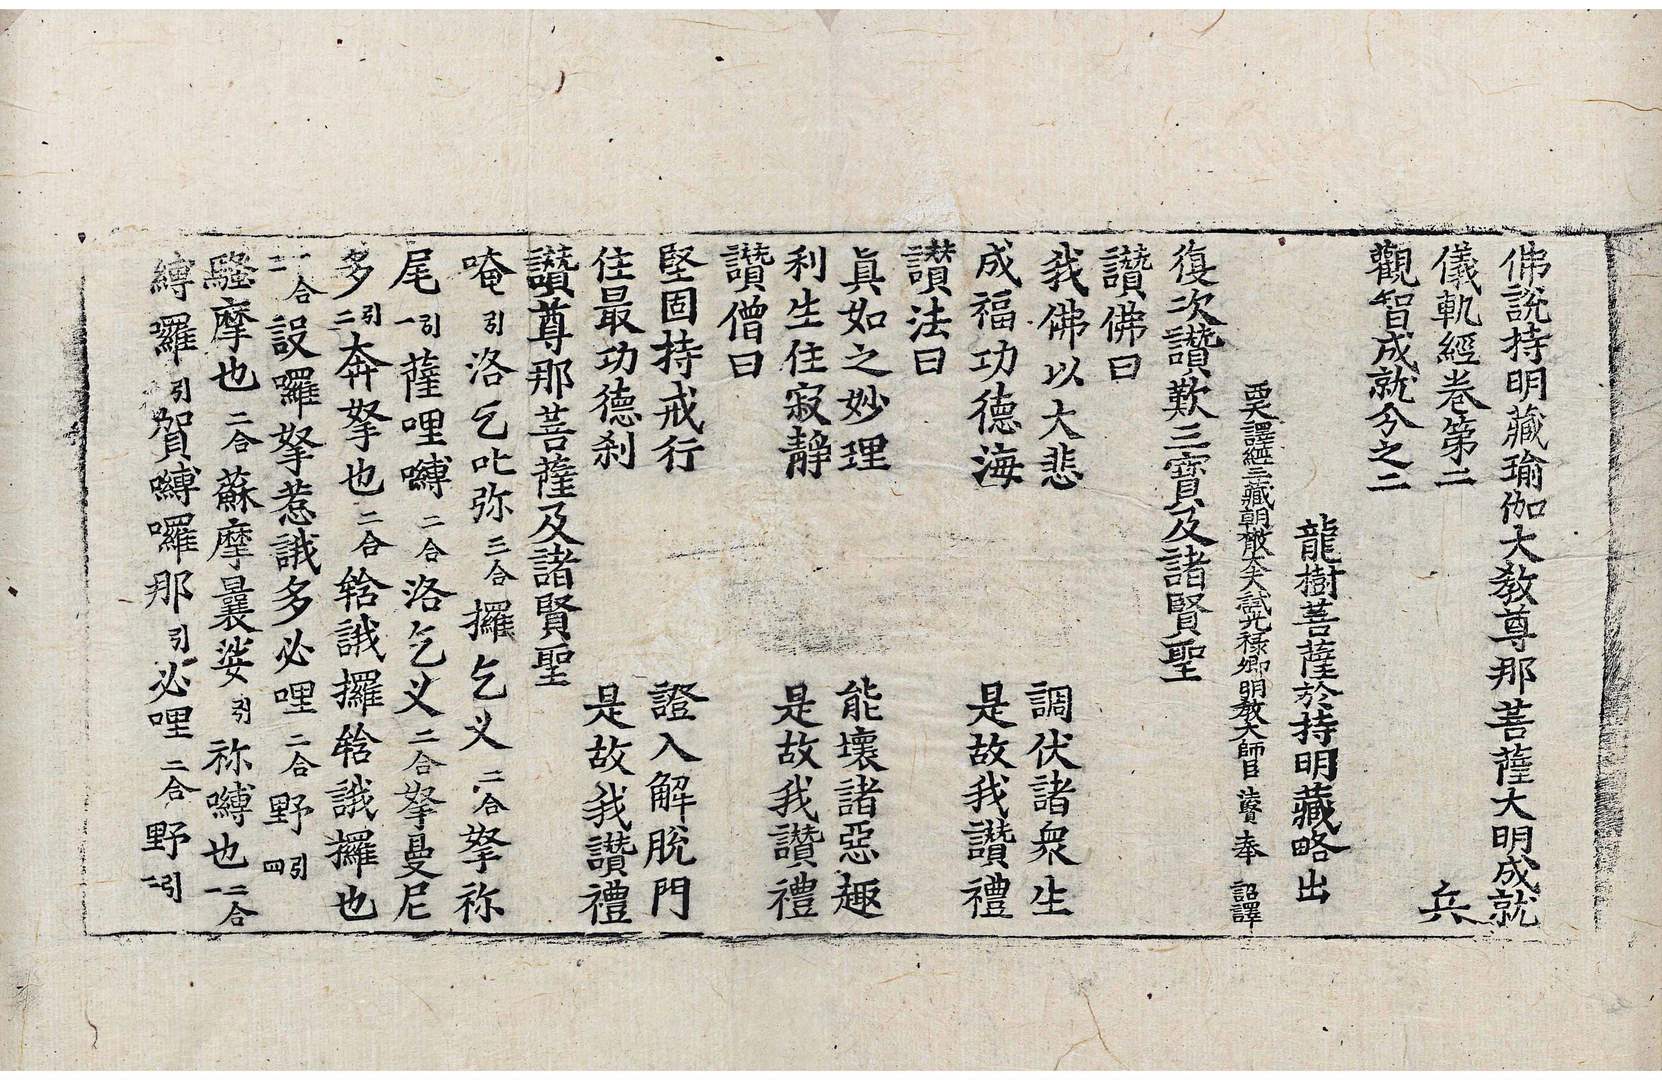 佛說持明藏瑜伽大教尊那菩薩大明成就
儀軌經卷第二 兵
觀智成就分之二
龍樹菩薩於持明藏略出
西天譯經三藏朝散大夫試光祿卿明教大師臣法賢奉 詔譯
復次讚歎三寶及諸賢聖
讚佛曰
我佛以大悲 調伏諸衆生
成福功德海 是故我讚禮
讚法曰
眞如之妙理 能壞諸惡趣
利生住寂靜 是故我讚禮
讚僧曰
堅固持戒行 證入解脫門
住最功德刹 是故我讚禮
讚尊那菩薩及諸賢聖
唵引洛乞叱弥三合攞乞义二合拏祢
尾引一薩哩嚩二合洛乞义二合拏曼尼
多引二奔拏也二合輅誐攞輅誐攞也
二合三設囉拏惹誐多必哩二合野引四
騷摩也二合蘇摩曩娑引祢嚩也二合一
嚩囉引賀嚩囉那引必哩二合野引二